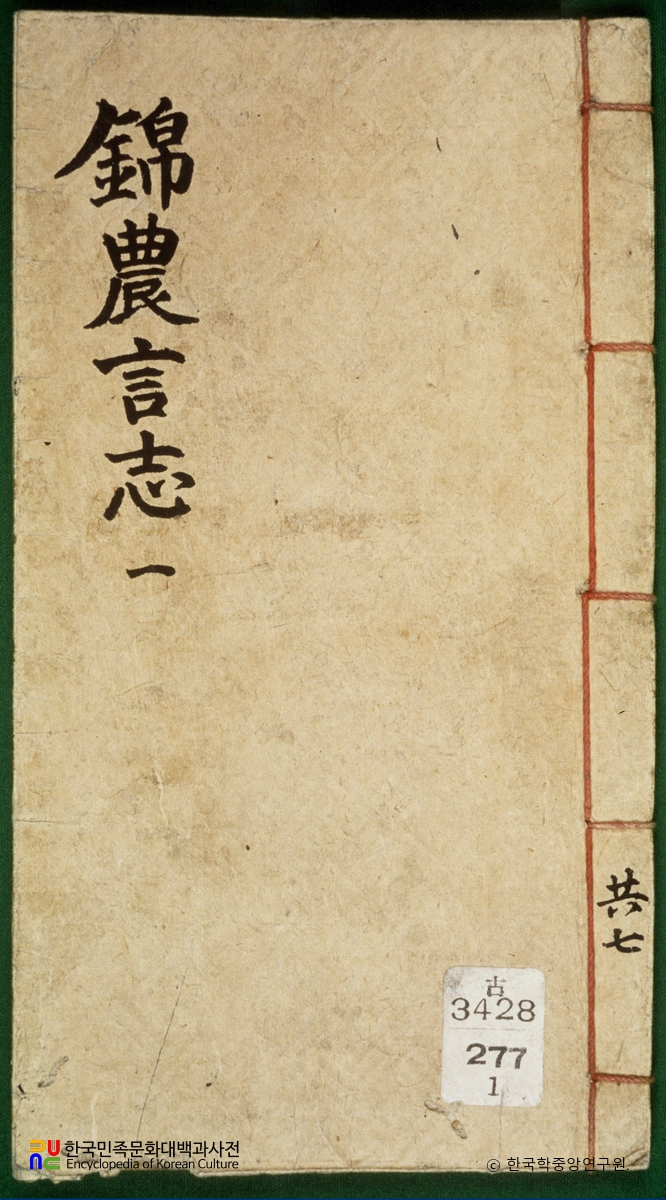 錦農言志 一
共七
古
3428
277
1
한국민족문화대백과사전
Encyclopedia of Korean Culture
© 한국학중앙연구원